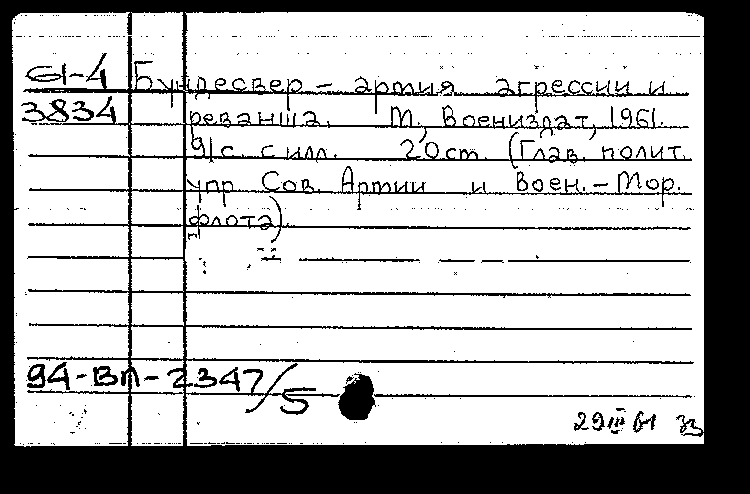 61-4 Бундесвер - армия агрессии и
3834 реванша. М., Воениздат, 1961.
91с. с илл. 20см. (Глав. полит.
упр Сов. Армии и Воен.-Мор.
флота).
94-ВП-2347/5
29 III 61